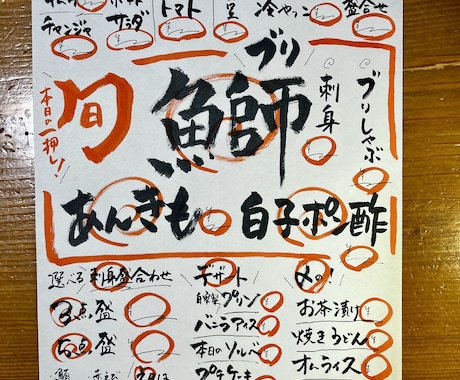 ポテト
サラダ
チャンジャ
トマト
冷やっこ
盛合せ
旬
本日の一押し!
ブリ
鰤
刺身
ブリしゃぶ
あんきも
白子ポン酢
選べる刺身盛合わせ
3点盛
5点盛
デザート
自家製プリン
バニラアイス
本日のソルベ
プチケーキ
〆の!
お茶漬け
焼きうどん
オムライス